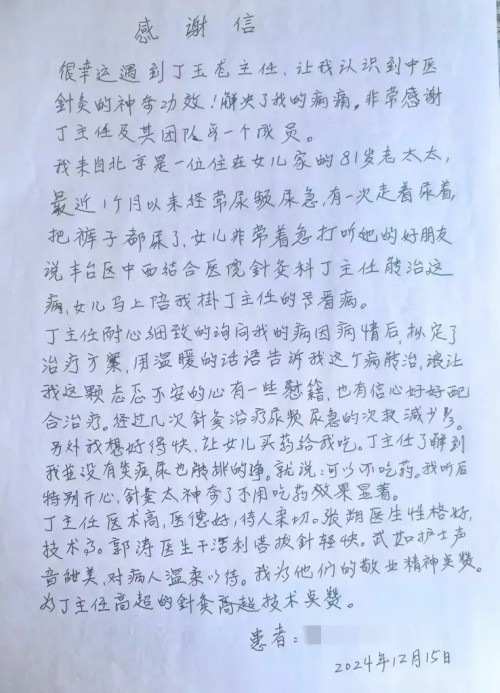 感谢信
很幸运遇到丁玉龙主任，让我认识到中医
針灸的神奇功效！解决了我的病痛。非常感谢
丁主任及其团队每一个成员。
我来自北京是一位住在女儿家的81岁老太太，
最近1个月以来经常尿频尿急，有一次走着尿着，
把裤子都尿了，女儿非常着急打听她的好朋友
说丰台区中西结合医院針灸科丁主任能治这
病，女儿马上陪我掛丁主任的号看病。
丁主任耐心细致的询问我的病因病情后，拟定了
治疗方案，用温暖的话语告诉我这个病能治，让
我这颗忐忑不安的心有一些慰籍，也有信心好好配
合治疗。经过几次針灸治疗尿频尿急的次数减少多。
另外我想好得快，让女儿买药给我吃。丁主任了解到
我並没有炎症，尿也能排的净。就说：可以不吃药。我听后
特别开心，針灸太神奇了不用吃药效果显着。
丁主任医术高，医德好，待人亲切。张朔医生性格好，
技术高。郭涛医生干活利落拔針轻快。武如护士声
音甜美，对病人温柔以待。我为他们的敬业精神点赞。
为丁主任高超的針灸高超技术点赞。
患者：
2024年12月15日